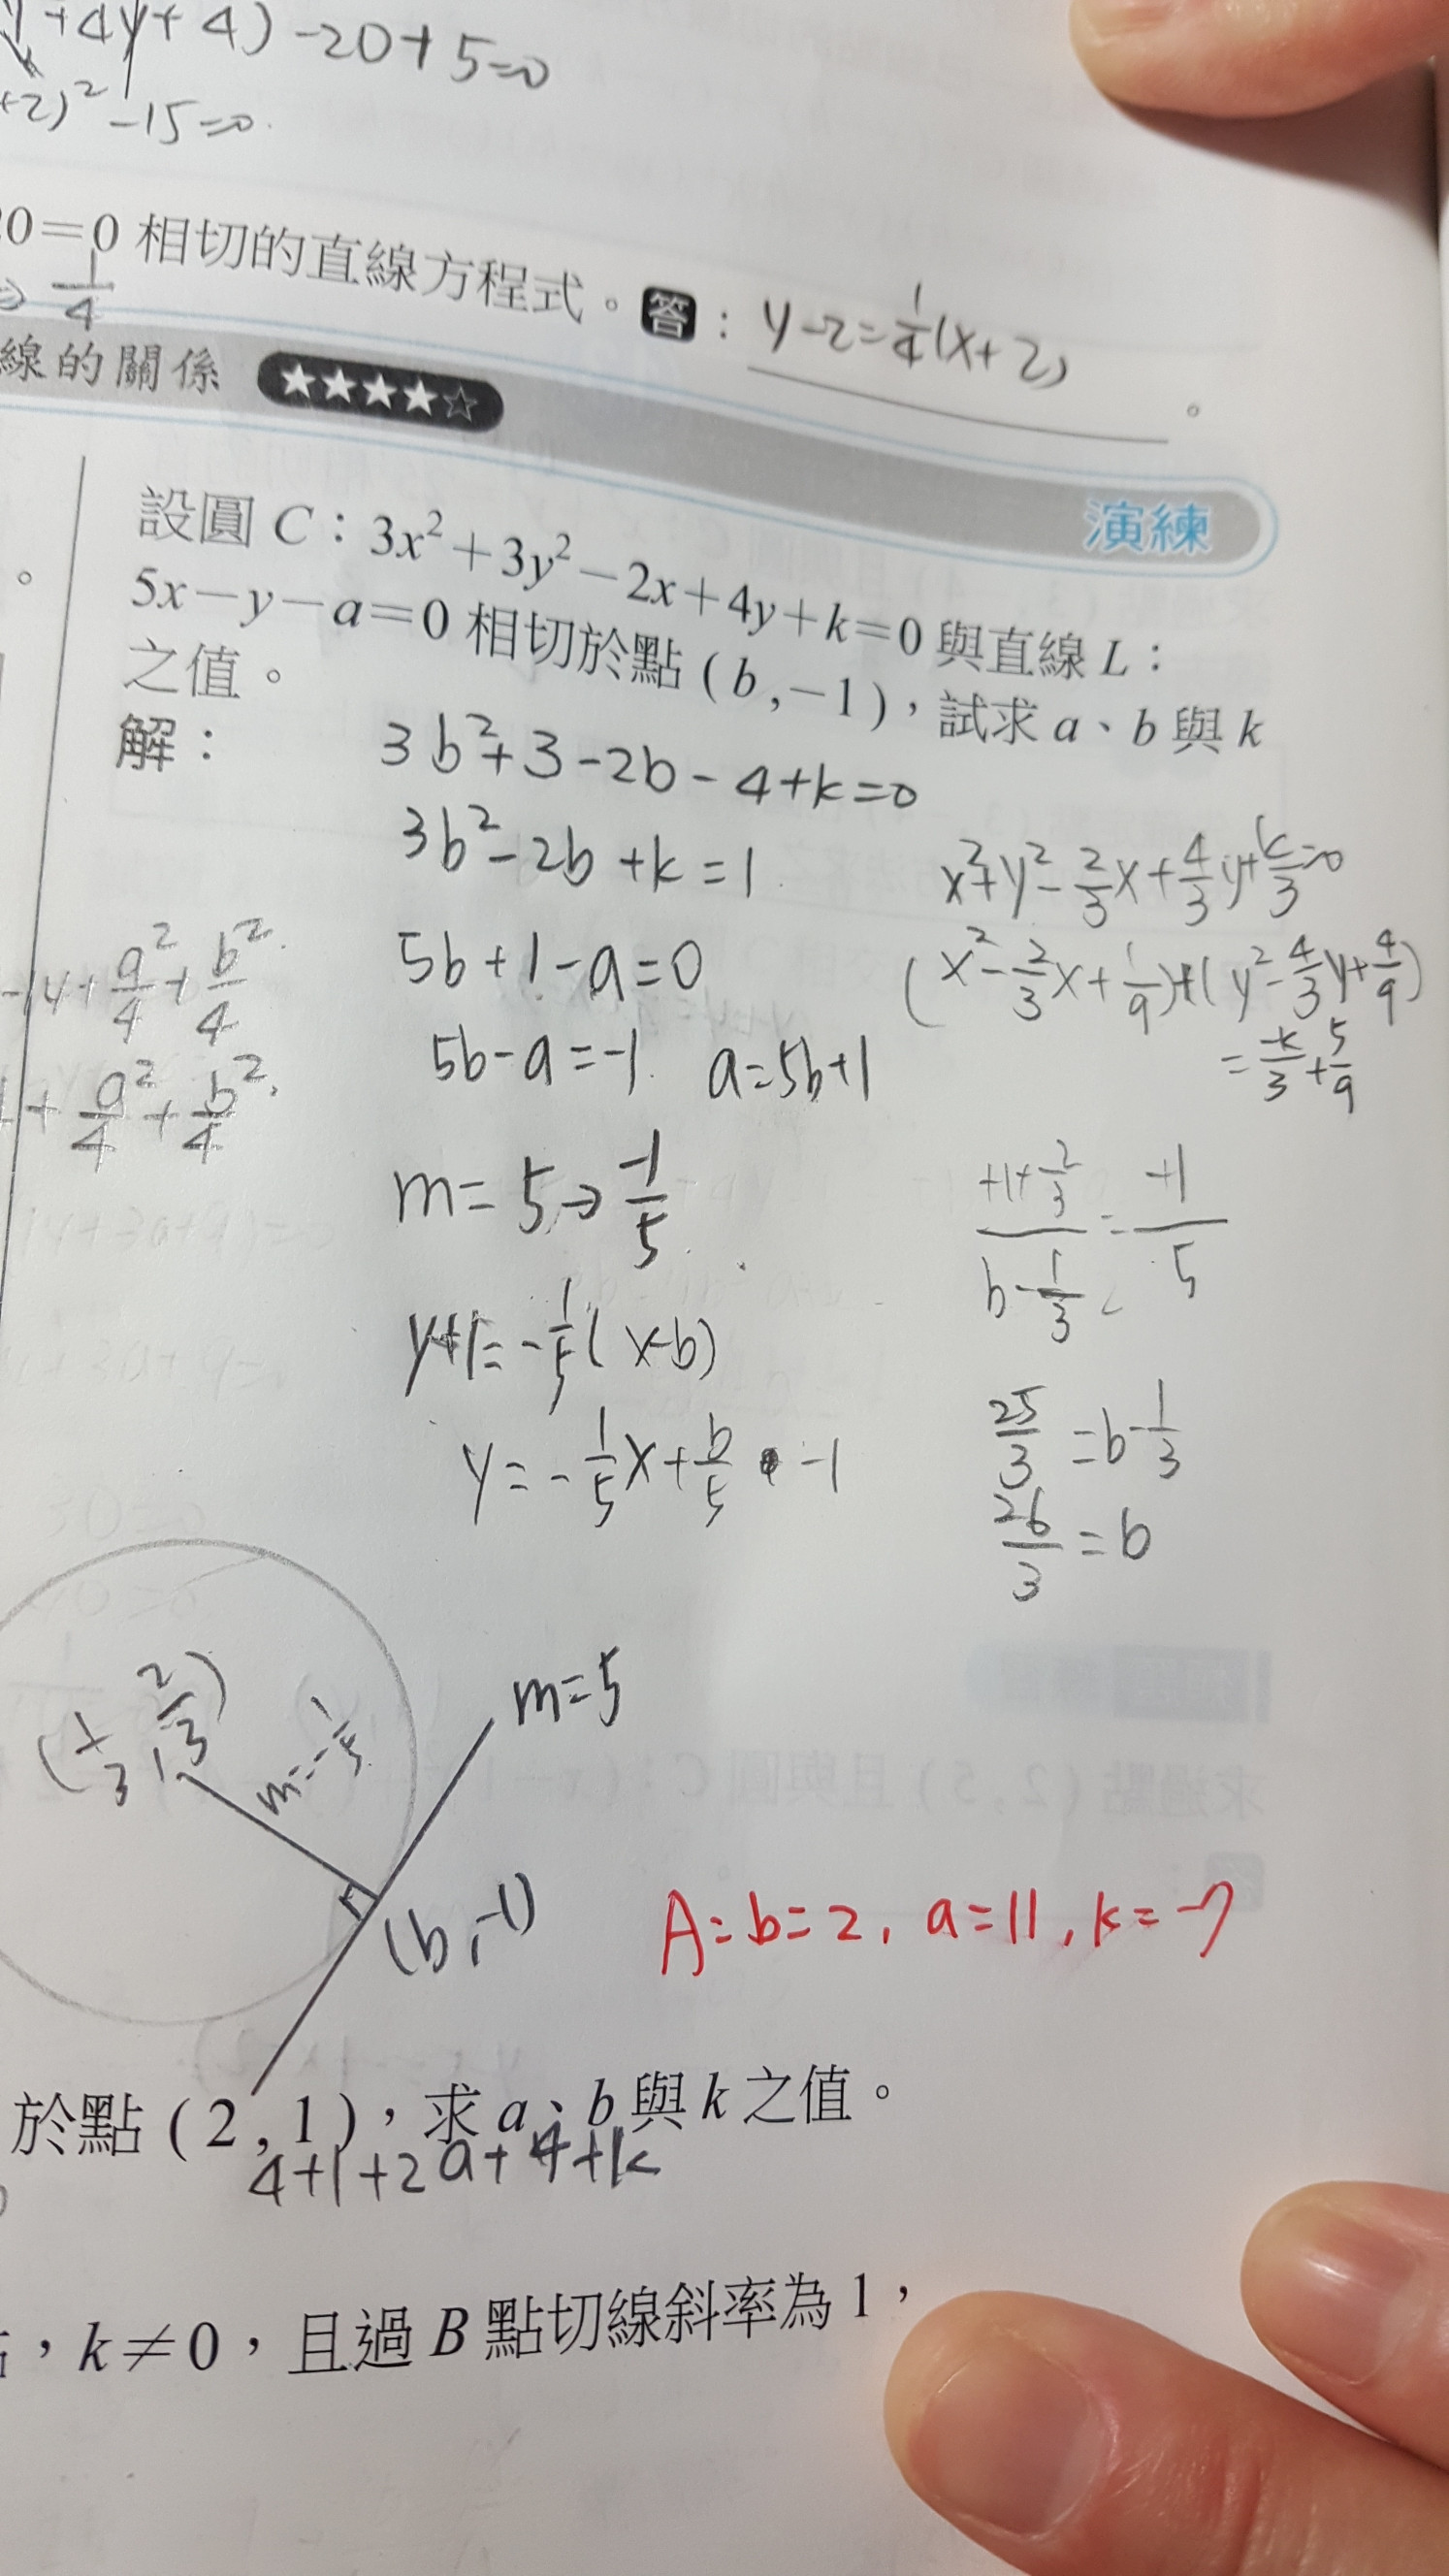 +4y+4)-20+5=0
+2)²-15=0.
20=0 相切的直線方程式。答：y-2=1/4(x+2)。
⇒ 1/4
線的關係 ★★★★☆
演練
設圓 C：3x²+3y²-2x+4y+k=0 與直線 L：
5x-y-a=0 相切於點 (b,-1)，試求 a、b 與 k
之值。
解：
3b²+3-2b-4+k=0
3b²-2b+k=1
5b+1-a=0
5b-a=-1. a=5b+1
m=5→-1/5
y+1=-1/5(x-b)
y=-1/5x+b/5-1
x²+y²-2/3x+4/3y+k/3=0
(x²-2/3x+1/9)+(y²-4/3y+4/9)
=-k/3+5/9
+1+2/3/b-1/3=+1/5
25/3=b-1/3
26/3=b
-y+a²/4+b²/4.
+a²/4+b²/4,
(1/3,2/3)
m=-1/5
m=5
(b,-1)
A=b=2, a=11, k=-7
於點 (2,1)，求 a、b 與 k 之值。
4+1+2a+4+k
，k≠0，且過 B 點切線斜率為 1，